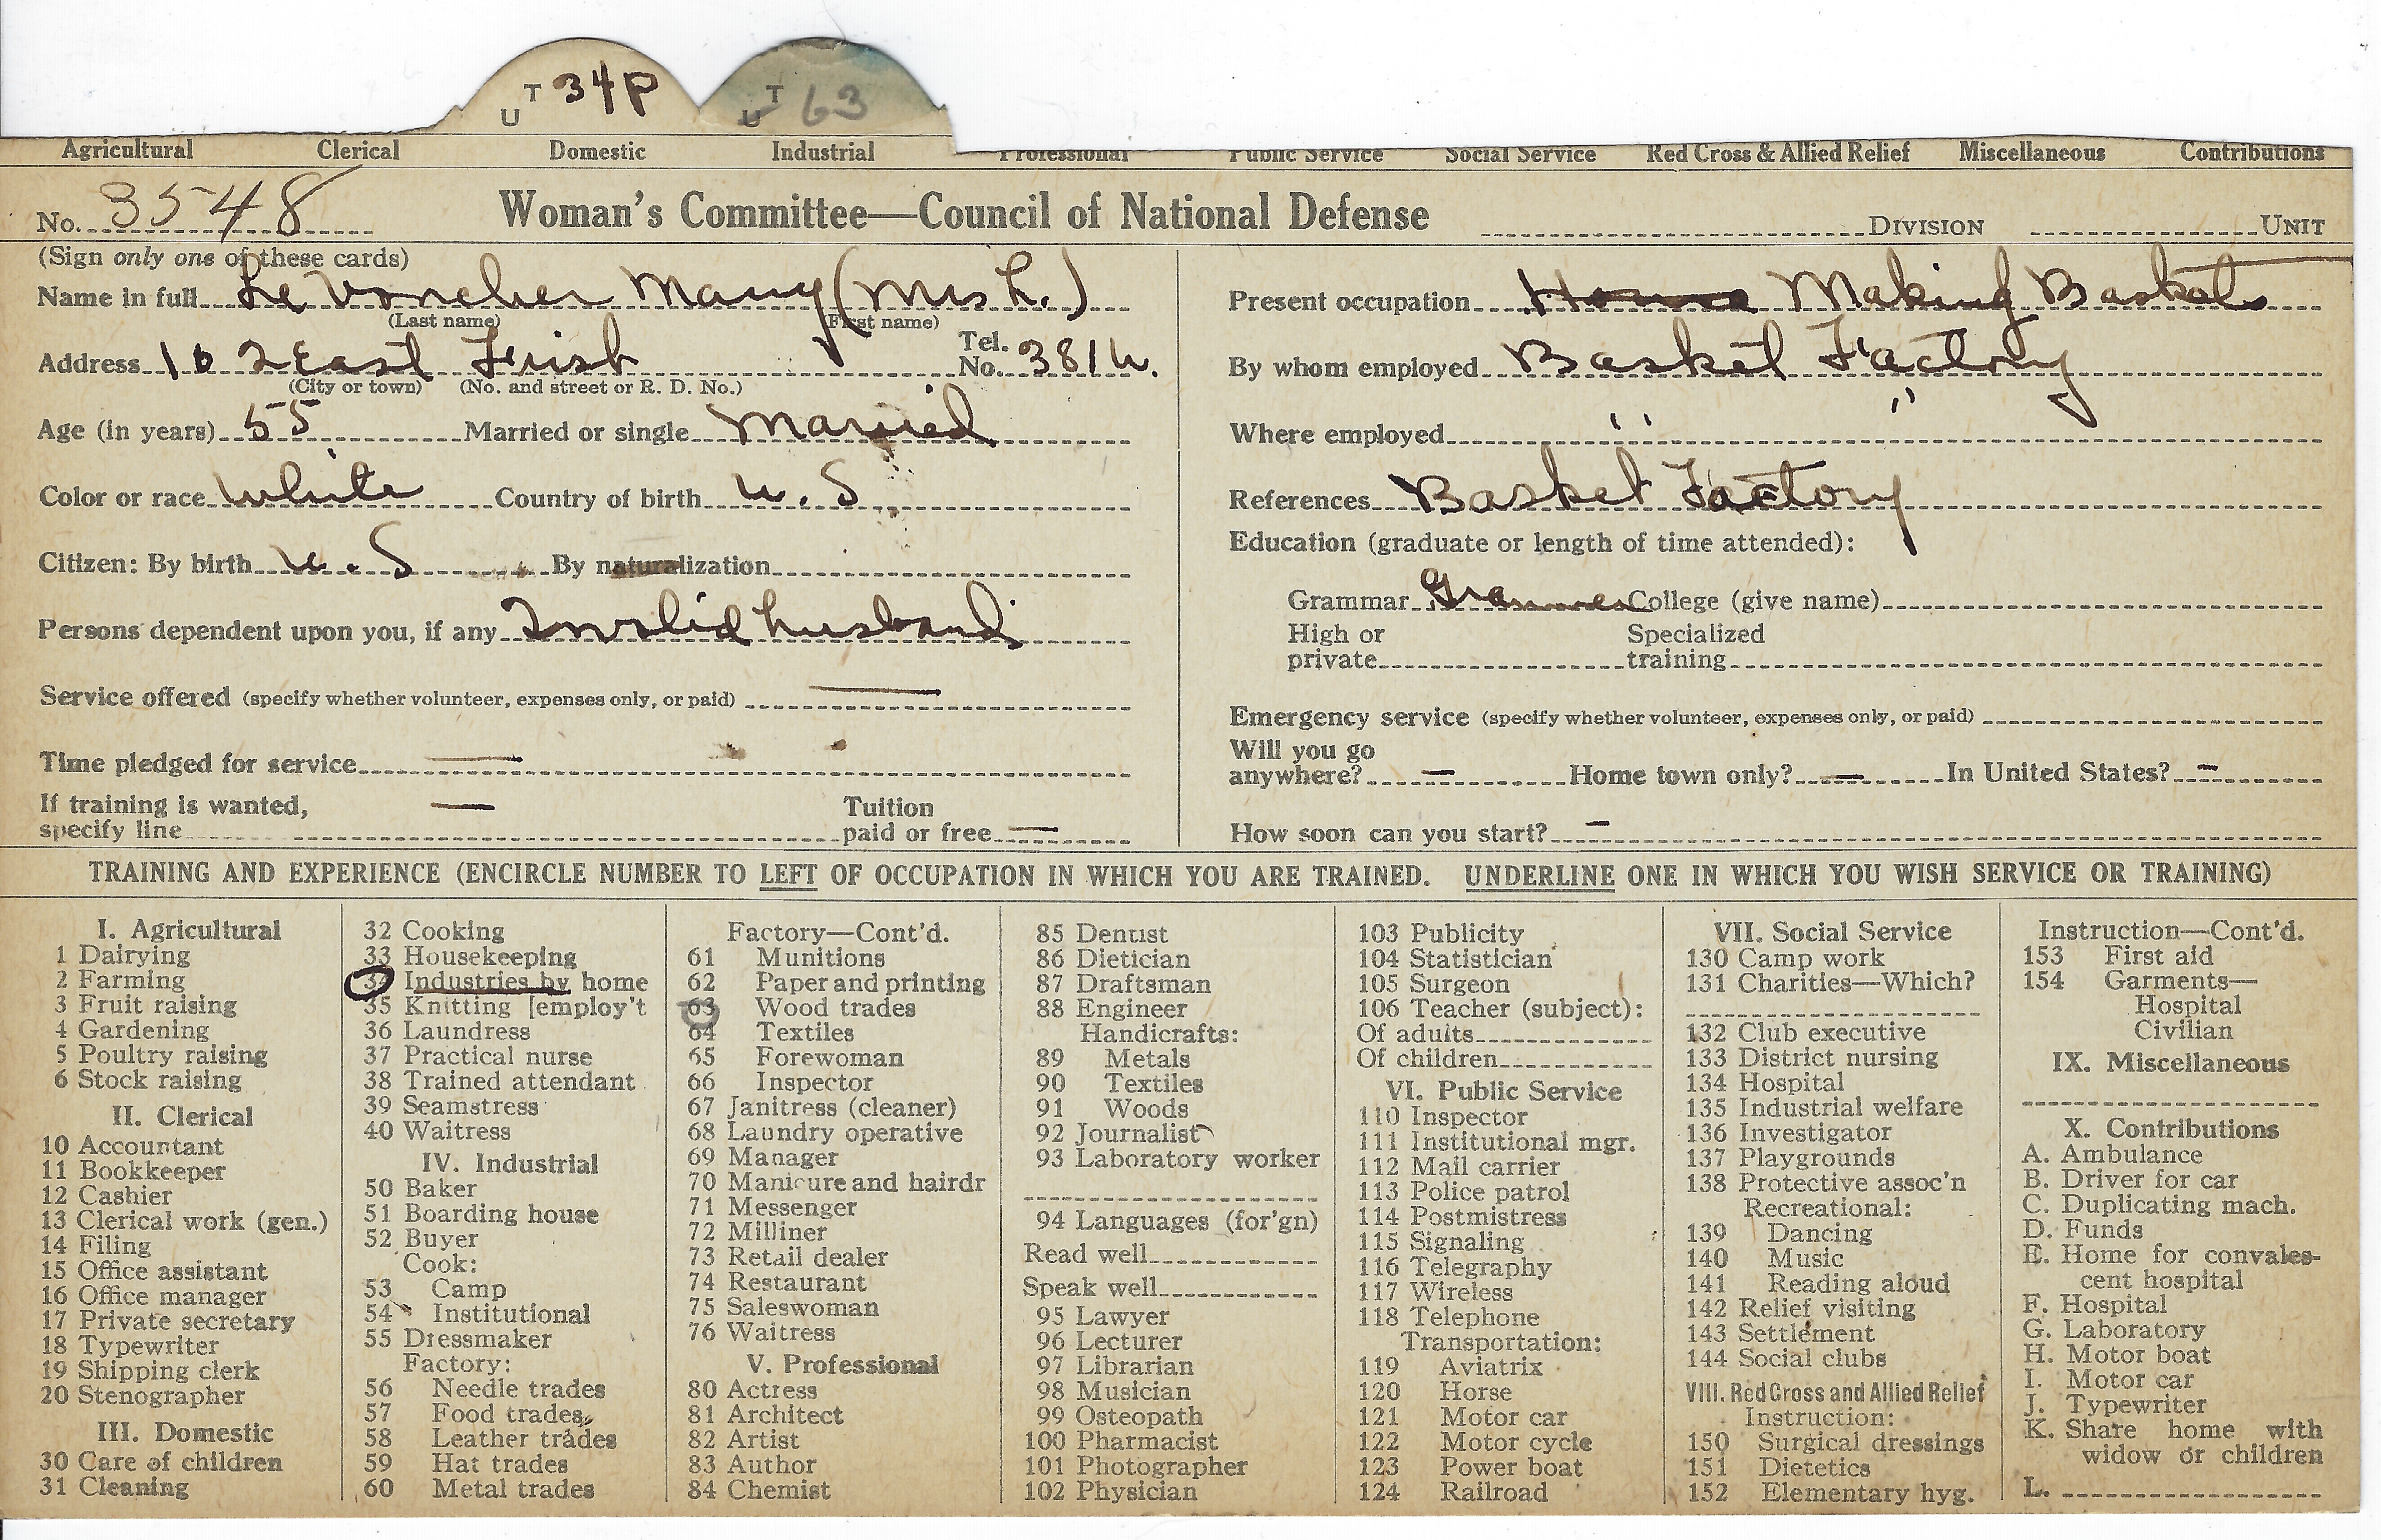 U T 34P U T 63
Agricultural Clerical Domestic Industrial Professional Public Service Social Service Red Cross & Allied Relief Miscellaneous Contributions
No. 3548 Woman's Committee—Council of National Defense DIVISION UNIT
(Sign only one of these cards)
Name in full Le Voncher Mary (Mrs L.)
(Last name) (First name)
Address 102 East Frisb Tel. No. 381W.
(City or town) (No. and street or R. D. No.)
Age (in years) 55 Married or single Married
Color or race White Country of birth U.S
Citizen: By birth U.S By naturalization
Persons dependent upon you, if any Invalid husband
Service offered (specify whether volunteer, expenses only, or paid) —
Time pledged for service —
If training is wanted, specify line — Tuition paid or free —
Present occupation Home Making Baskets
By whom employed Basket Factory
Where employed " "
References Basket Factory
Education (graduate or length of time attended):
Grammar Grammer College (give name)
High or private Specialized training
Emergency service (specify whether volunteer, expenses only, or paid)
Will you go anywhere? — Home town only? — In United States? -
How soon can you start? -
TRAINING AND EXPERIENCE (ENCIRCLE NUMBER TO LEFT OF OCCUPATION IN WHICH YOU ARE TRAINED. UNDERLINE ONE IN WHICH YOU WISH SERVICE OR TRAINING)
I. Agricultural
1 Dairying
2 Farming
3 Fruit raising
4 Gardening
5 Poultry raising
6 Stock raising
II. Clerical
10 Accountant
11 Bookkeeper
12 Cashier
13 Clerical work (gen.)
14 Filing
15 Office assistant
16 Office manager
17 Private secretary
18 Typewriter
19 Shipping clerk
20 Stenographer
III. Domestic
30 Care of children
31 Cleaning
32 Cooking
33 Housekeeping
34 Industries by home
35 Knitting [employ't
36 Laundress
37 Practical nurse
38 Trained attendant
39 Seamstress
40 Waitress
IV. Industrial
50 Baker
51 Boarding house
52 Buyer
Cook:
53 Camp
54 Institutional
55 Dressmaker
Factory:
56 Needle trades
57 Food trades
58 Leather trades
59 Hat trades
60 Metal trades
Factory—Cont'd.
61 Munitions
62 Paper and printing
63 Wood trades
64 Textiles
65 Forewoman
66 Inspector
67 Janitress (cleaner)
68 Laundry operative
69 Manager
70 Manicure and hairdr
71 Messenger
72 Milliner
73 Retail dealer
74 Restaurant
75 Saleswoman
76 Waitress
V. Professional
80 Actress
81 Architect
82 Artist
83 Author
84 Chemist
85 Dentist
86 Dietician
87 Draftsman
88 Engineer
Handicrafts:
89 Metals
90 Textiles
91 Woods
92 Journalist
93 Laboratory worker
94 Languages (for'gn)
Read well
Speak well
95 Lawyer
96 Lecturer
97 Librarian
98 Musician
99 Osteopath
100 Pharmacist
101 Photographer
102 Physician
103 Publicity
104 Statistician
105 Surgeon
106 Teacher (subject):
Of adults
Of children
VI. Public Service
110 Inspector
111 Institutional mgr.
112 Mail carrier
113 Police patrol
114 Postmistress
115 Signaling
116 Telegraphy
117 Wireless
118 Telephone
Transportation:
119 Aviatrix
120 Horse
121 Motor car
122 Motor cycle
123 Power boat
124 Railroad
VII. Social Service
130 Camp work
131 Charities—Which?
132 Club executive
133 District nursing
134 Hospital
135 Industrial welfare
136 Investigator
137 Playgrounds
138 Protective assoc'n
Recreational:
139 Dancing
140 Music
141 Reading aloud
142 Relief visiting
143 Settlement
144 Social clubs
VIII. Red Cross and Allied Relief
Instruction:
150 Surgical dressings
151 Dietetics
152 Elementary hyg.
Instruction—Cont'd.
153 First aid
154 Garments—
Hospital
Civilian
IX. Miscellaneous
X. Contributions
A. Ambulance
B. Driver for car
C. Duplicating mach.
D. Funds
E. Home for convales-
cent hospital
F. Hospital
G. Laboratory
H. Motor boat
I. Motor car
J. Typewriter
K. Share home with
widow or children
L.